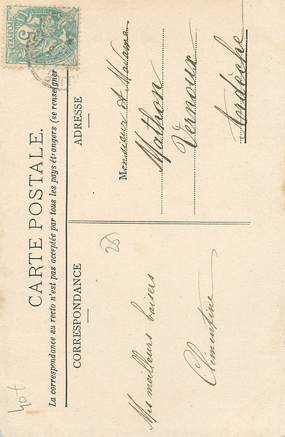 CARTE POSTALE.
La correspondance au recto n'est pas acceptée par tous les pays étrangers (se renseigner
CORRESPONDANCE
ADRESSE
Mes meilleurs baisers
Clémentine
Monsieur et Madame
Mathon
Vernoux
Ardèche
(26)
40f
5